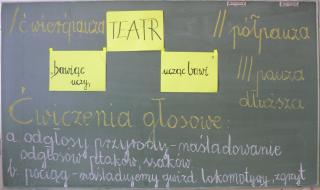 /ćwierćpauza TEATR // półpauza
„bawiąc uczy,
ucząc bawi"
/// pauza
dłuższa
Ćwiczenia głosowe:
a. odgłosy przyrody - naśladowanie
odgłosów ptaków, ssaków
b. pociąg - naśladujemy gwizd lokomotywy, zgrzyt